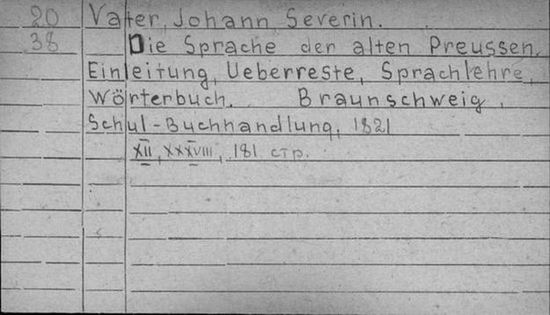 20 Vater, Johann Severin.
38 Die Sprache der alten Preussen.
Einleitung, Ueberreste, Sprachlehre,
Wörterbuch. Braunschweig,
Schul-Buchhandlung, 1821
XII, XXXVIII, 181 стр.